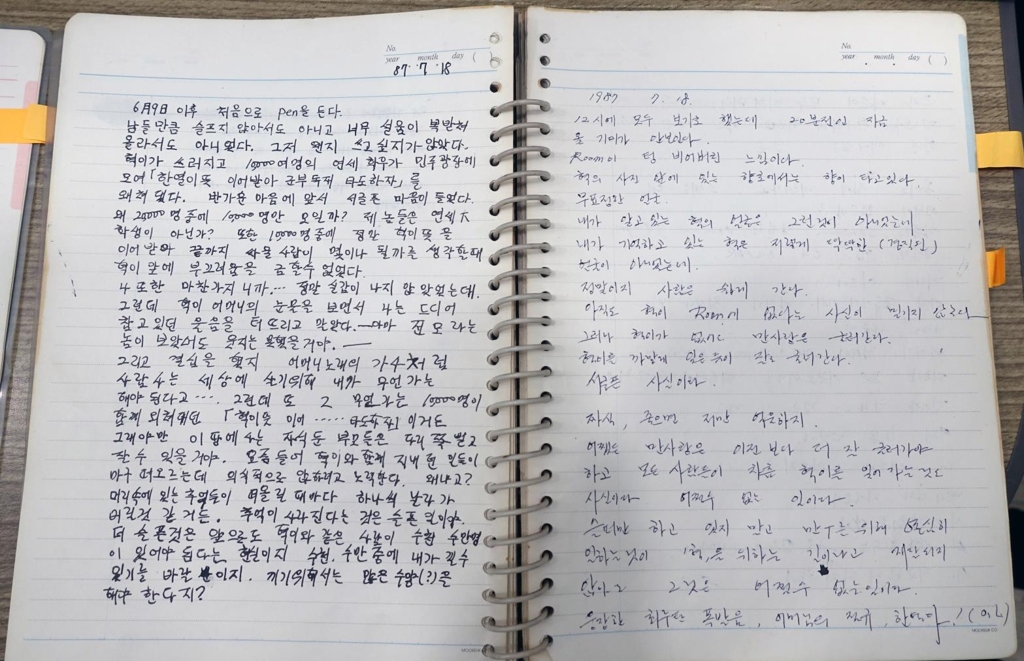 No.
year month day ( )
87. 7. 18
6月9日 이후 처음으로 pen을 든다.
남들만큼 슬프지 않아서도 아니고 너무 설움이 북받쳐
올라서도 아니었다. 그저 왠지 쓰고 싶지가 않았다.
혁이가 쓰러지고 10,000여명의 연세 학우가 민주광장에
모여 「한열이 뜻 이어받아 군부독재 타도하자」를
외쳐 댔다. 반가운 마음에 앞서 서글픈 마음이 들었다.
왜 20,000명 중에 10,000명만 모인까? 제 놈들은 연세大
학생이 아닌가? 또한 10,000명중에 정말 혁이 뜻을
이어받아 끝까지 싸울 사람이 몇이나 될까를 생각할때
혁이 앞에 부끄러움을 금할수 없었다.
나 또한 마찬가지니까... 정말 실감이 나지 않았었는데.
그런데 혁이 어머니의 눈물을 보면서 나는 드디어
참고 있던 울음을 터뜨리고 말았다. 아마 전 모라는
놈이 보았어도 웃지는 못했을거야.
그리고 결심을 했지 어머니노래의 가사처럼
사람 사는 세상에 살기위해 내가 무언가는
해야 된다고.... 그런데 또 그 10,000명이
함께 외쳐댔던 「혁이뜻 이어 ...... 타도하자」 이거든
그래야만 이 땅에 사는 자식둔 부모들은 다리 쭉 뻗고
잘 수 있을 거야. 요즘 들어 혁이와 함께 지내던 일들이
마구 떠오르는데 의식적으로 안하려고 노력한다. 왜냐고?
머리속에 있는 추억들이 떠올릴 때마다 하나씩 날라가
버릴것 같거든. 추억이 사라진다는 것은 슬픈 일이야.
더 슬픈것은 앞으로도 혁이와 같은 사람이 수천 수만명
이 있어야 된다는 현실이지 수천, 수만 중에 내가 낄수
있기를 바랄 뿐이지. 끼기위해서는 많은 수양(?)을
해야 한다지?
MOONHWA CO.
No.
year month day ( )
1987 7. 18.
12시에 모두 보기로 했는데 20분전인 지금
올 기미가 안보인다.
Room이 텅 비어버린 느낌이다.
혁의 사진 앞에 있는 향로에서는 향이 타고있다
무표정한 얼굴.
내가 알고 있는 혁의 얼굴은 그런것이 아니었는데
내가 기억하고 있는 혁은 저렇게 딱딱한 (경직된)
얼굴이 아니었는데.
정말이지 사람은 쉽게 간다.
아직도 혁이 Room에 없다는 사실이 믿기지 않는다
그러나 혁이가 없어도 만사람은 굴러간다.
혁이는 까맣게 잊은듯이 잘도 굴러간다.
서글픈 사실이다.
짜식, 죽으면 저만 억울하지.
어쨌든 만사람은 이전보다 더 잘 굴러가야
하고 모든 사람들이 차츰 혁이를 잊어 가는것도
사실이다 어쩔수 없는 일이다.
슬퍼만 하고 있지 말고 만수를 위해 성실히
일하는것이 '혁'을 위하는 길이라고 제안되지
않아도 그것은 어쩔수 없는일이다.
MOONHWA CO.